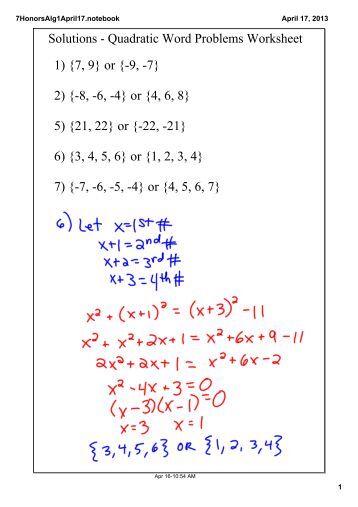 7HonorsAlg1April17.notebook April 17, 2013
Solutions - Quadratic Word Problems Worksheet
1) {7, 9} or {-9, -7}
2) {-8, -6, -4} or {4, 6, 8}
5) {21, 22} or {-22, -21}
6) {3, 4, 5, 6} or {1, 2, 3, 4}
7) {-7, -6, -5, -4} or {4, 5, 6, 7}
6) Let x=1st #
x+1=2nd #
x+2=3rd #
x+3=4th #
x² + (x+1)² = (x+3)² -11
x² + x² +2x+1 = x² +6x+9-11
2x²+2x+1 = x²+6x-2
x²-4x+3=0
(x-3)(x-1)=0
x=3 x=1
{3,4,5,6} OR {1,2,3,4}
Apr 16-10:54 AM
1